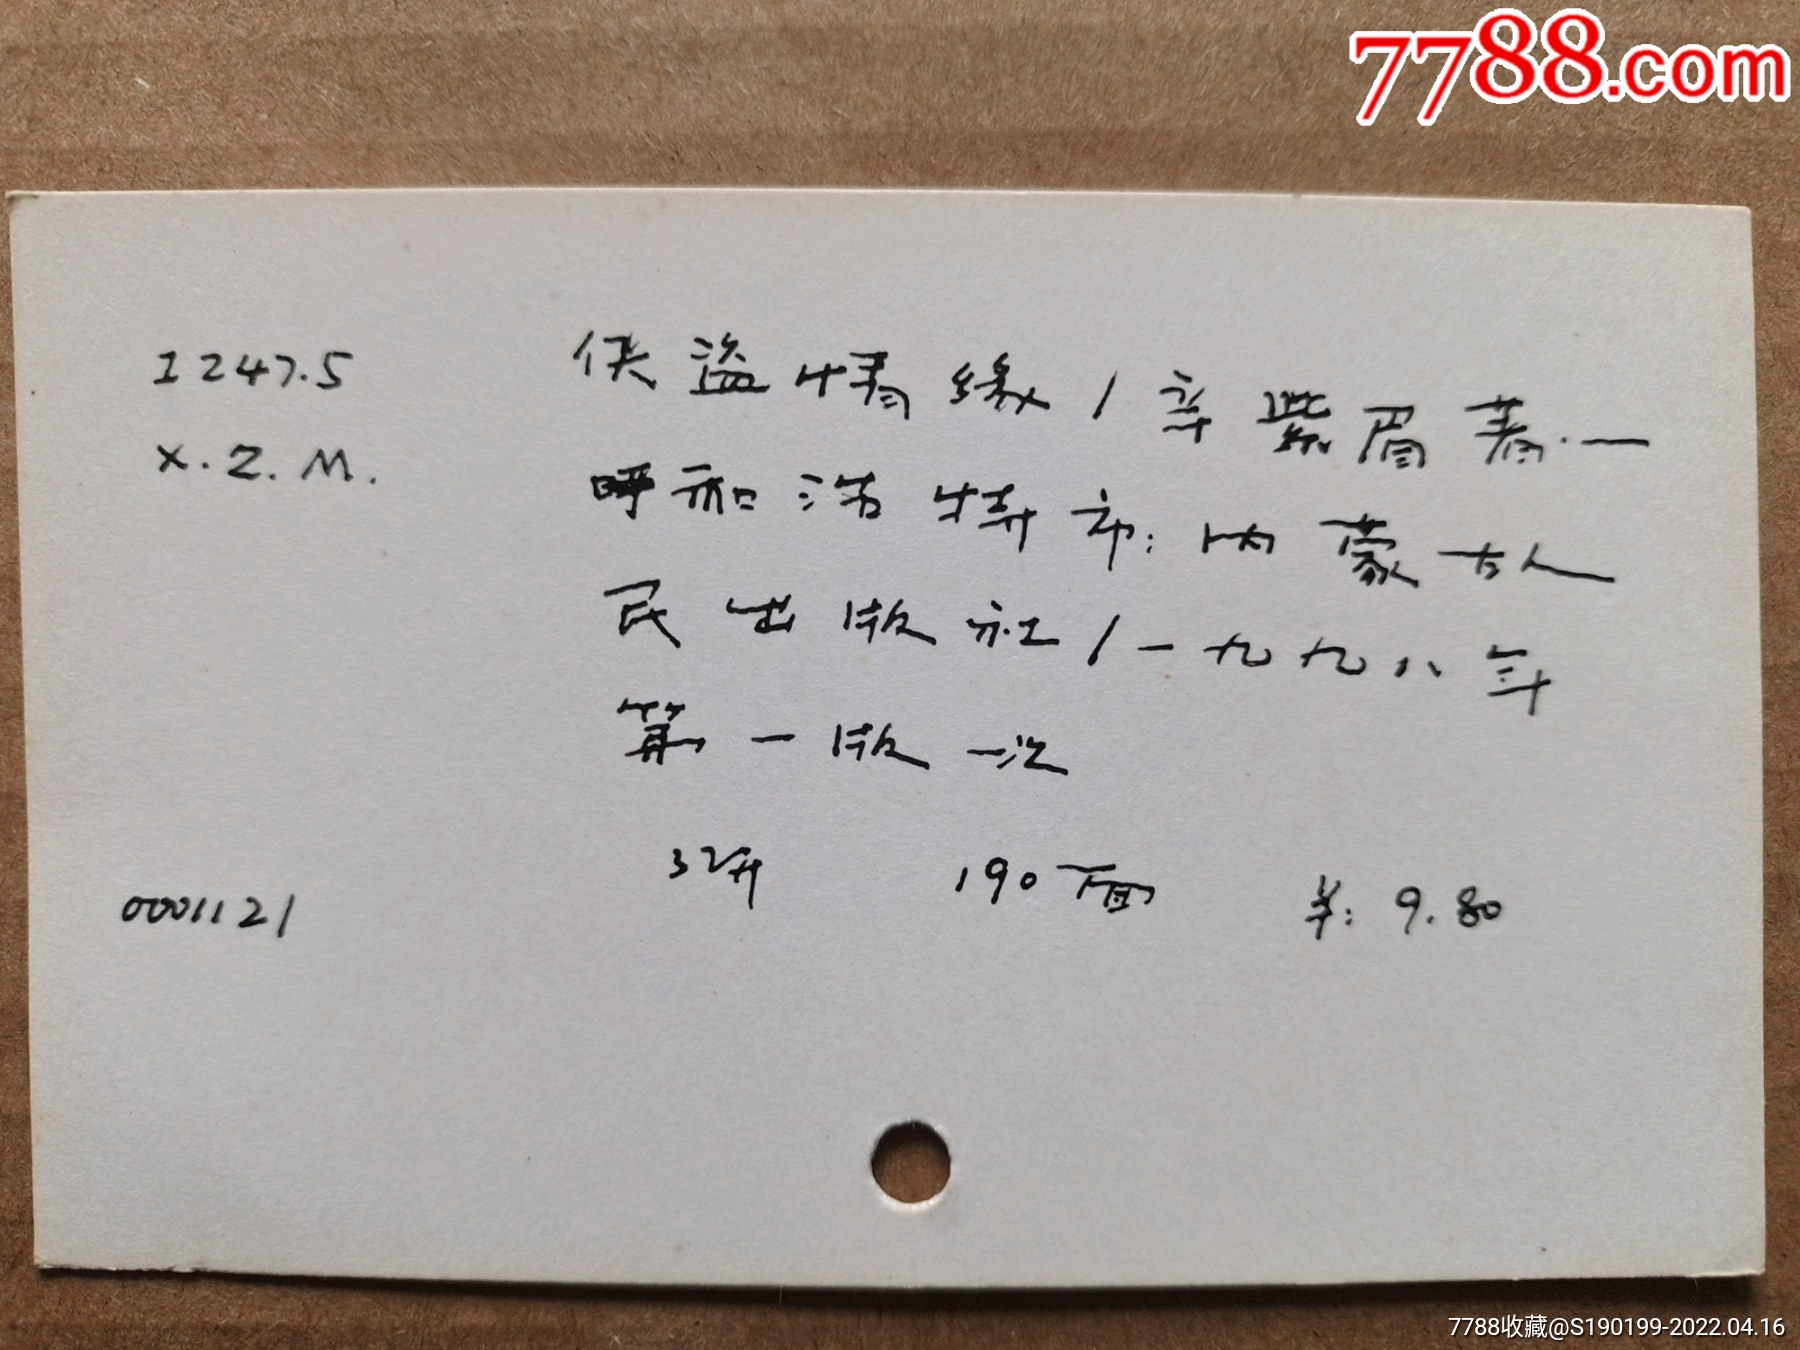 7788.com
I247.5
X.Z.M.
侠盗情缘/辛紫眉著.一
呼和浩特市:内蒙古人
民出版社/一九九八年
第一版一次
32开 190面 羊:9.80
0001121
7788收藏@S190199-2022.04.16